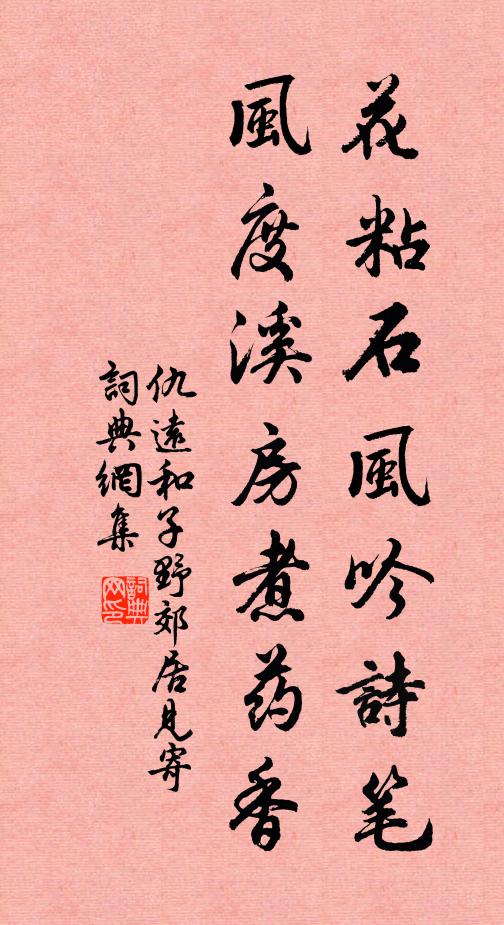 花粘石風吟詩笔
風度溪房煮药香
仇遠和子野郊居見寄
詞典網集
詞典网印